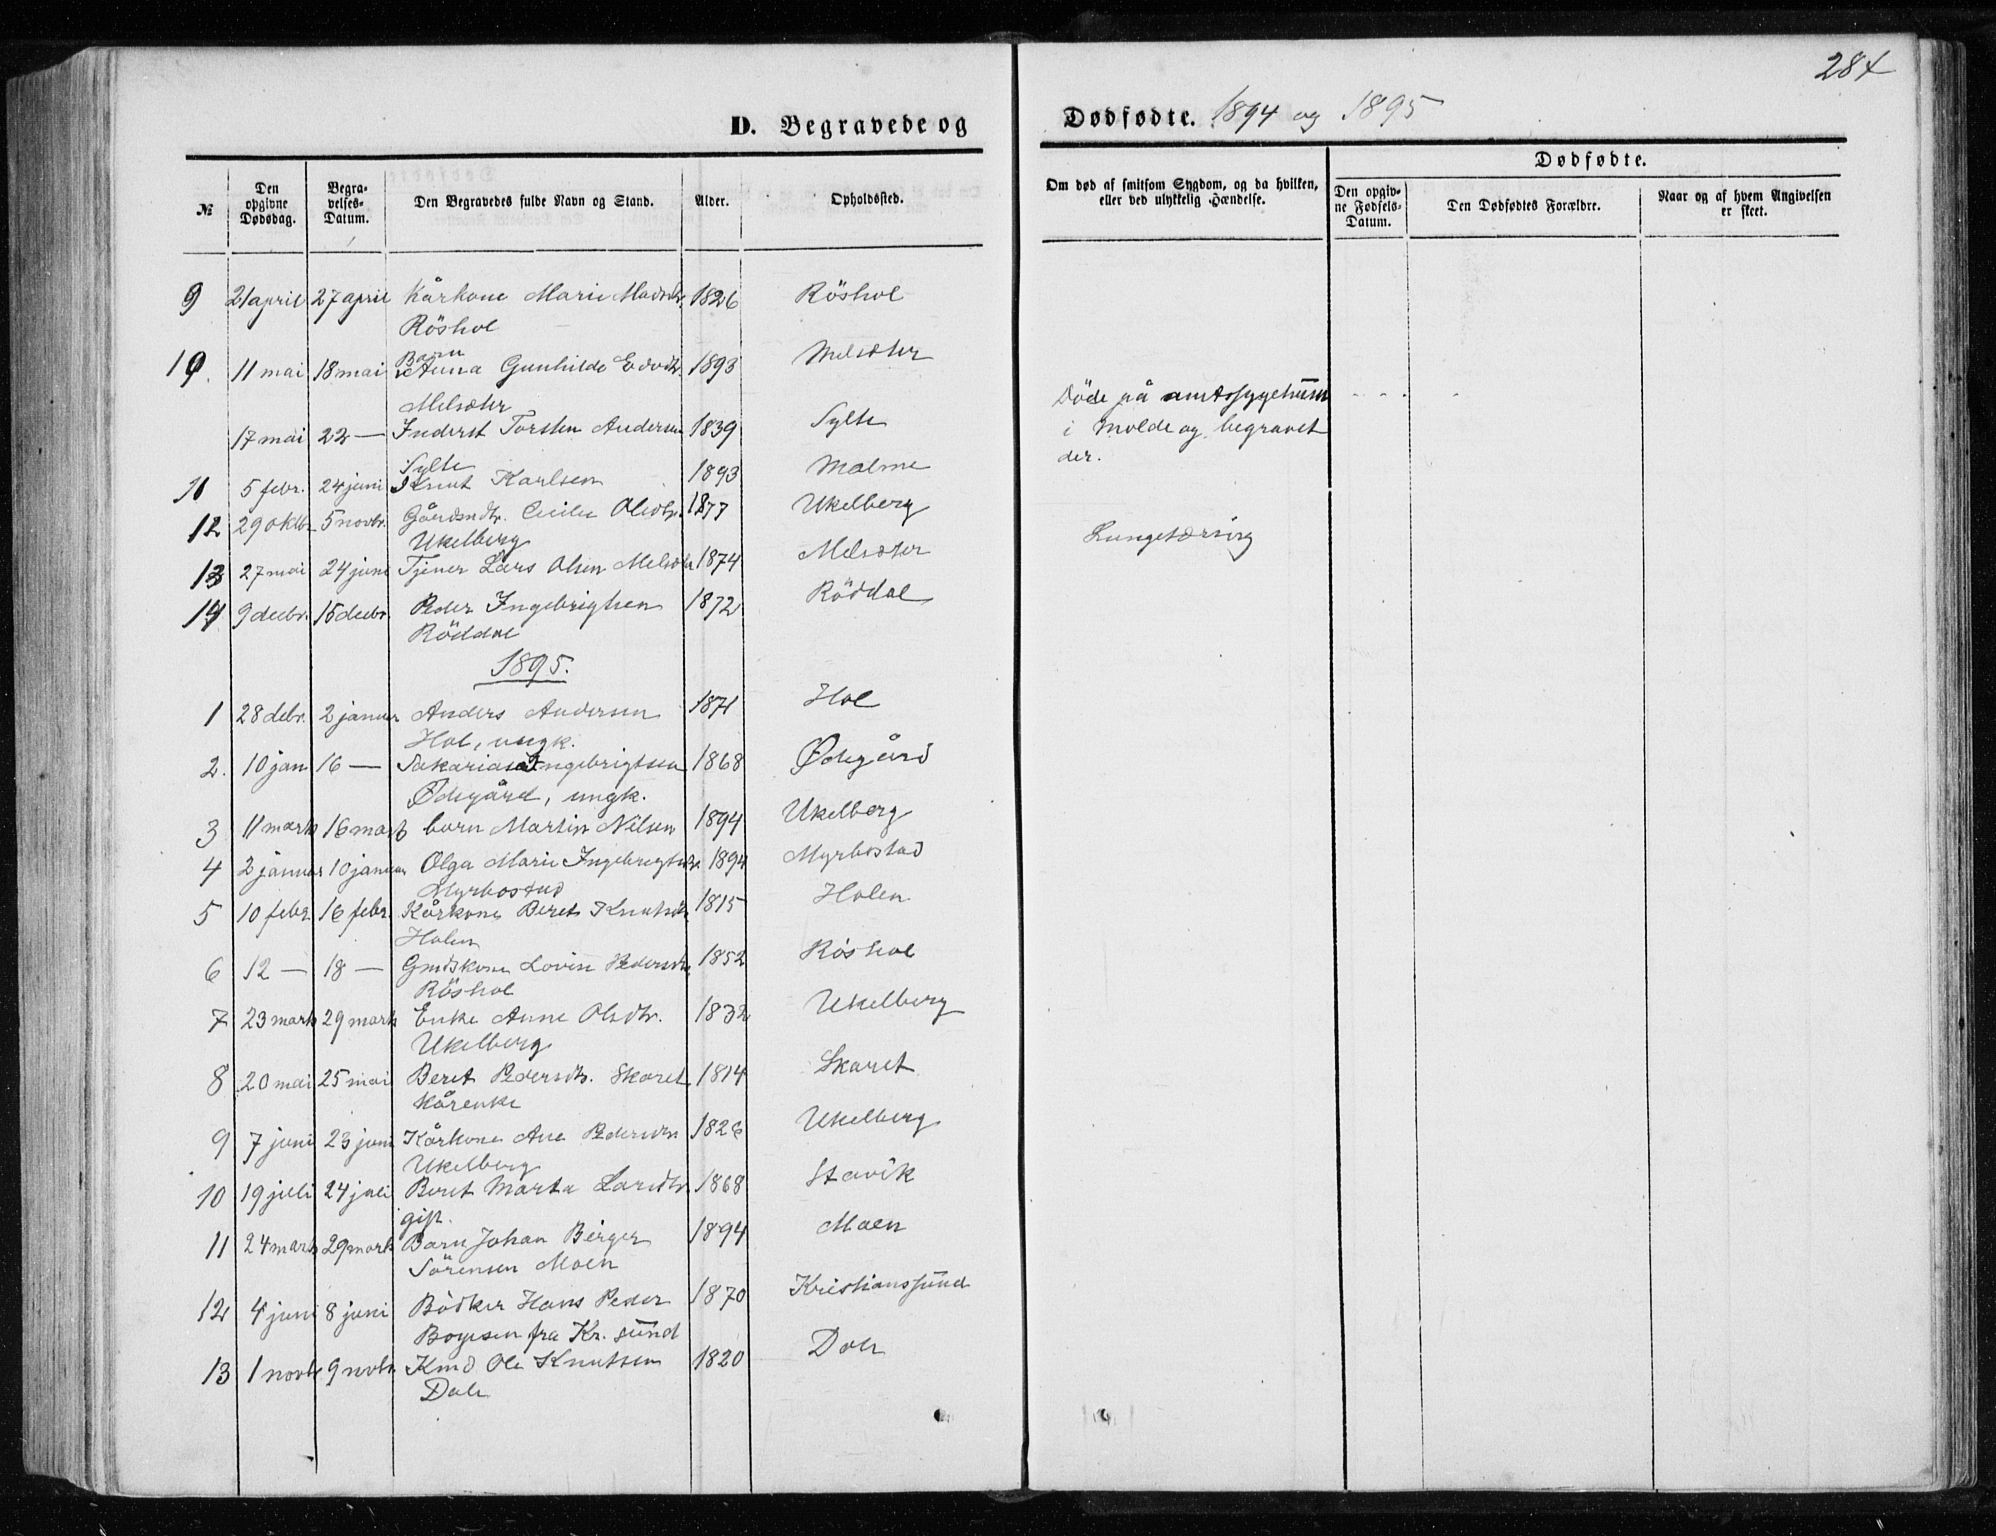 284
D. Begravede og Dødfødte. 1894 og 1895
№
Den opgivne Dødsdag.
Begravelses-Datum.
Den Begravedes fulde Navn og Stand.
Alder.
Opholdssted.
Om død af smitsom Sygdom, og da hvilken, eller ved ulykkelig Hændelse.
Dødfødte.
Den opgivne Fødsels-Datum.
Den Dødfødtes Forældre.
Naar og af hvem Angivelsen er skeet.
9 21 april 27 april Kårkone Marie Madsdtr. 1826 Röshol
Röshol
10. 11 mai 18 mai Barn Anna Gunhilde Edvdtr. 1893 Melsæter
Melsæter
17 mai 22 — Inderst Torsten Andersen 1839 Sylte Döde på amtssygehuset
Sylte i Molde og begravet
der.
11 5 febr. 24 juni Knut Karlsen 1893 Malme
12 29 oktbr. 5 novbr. Gårdmdtr. Cecilie Olsdtr. 1877 Ukelberg
Ukelberg Lungetæring
13 27 mai 24 juni Tjener Lars Olsen Melsæter 1874 Melsæter
14 9 decbr. 15 decbr. Peder Ingebrigtsen 1872 Röddal
Röddal
1895.
1 28 debr. 2 januar Anders Andersen 1871 Hol
Hol, ungk.
2. 10 jan 16 — Sakarias Ingebrigtsen 1868 Ødegård
Ødegård, ungk.
3 11 marts 16 marts barn Martin Nilsen 1894 Ukelberg
4 2 januar 10 januar Olga Marie Ingebrigtsdtr. 1894 Myrbostad
Myrbostad
5 10 febr. 16 febr. Kårkone Beret Knutsdtr. 1815 Holen
Holen
6 12 — 18 — Gmdskone Lovise Pedersdtr. 1852 Röshol
Röshol
7 23 marts 29 marts Enke Anne Olsdtr. 1832 Ukelberg
Ukelberg
8 20 mai 25 mai Beret Pedersdtr. Skaret 1814 Skaret
Kårenke
9 7 juni 23 juni Kårkone Ane Pedersdtr 1826 Ukelberg
Ukelberg
10 19 juli 24 juli Beret Marta Larsdtr. 1868 Stavik
gift.
11 24 marts 29 marts Barn Johan Birger 1894 Moen
Sörensen Moen
12 4 juni 8 juni Bödker Hans Peder 1870 Kristianssund
Boysen fra Kr. sund
13 1 novbr 9 novbr Kmd Ole Knutsen 1820 Dale
Dale